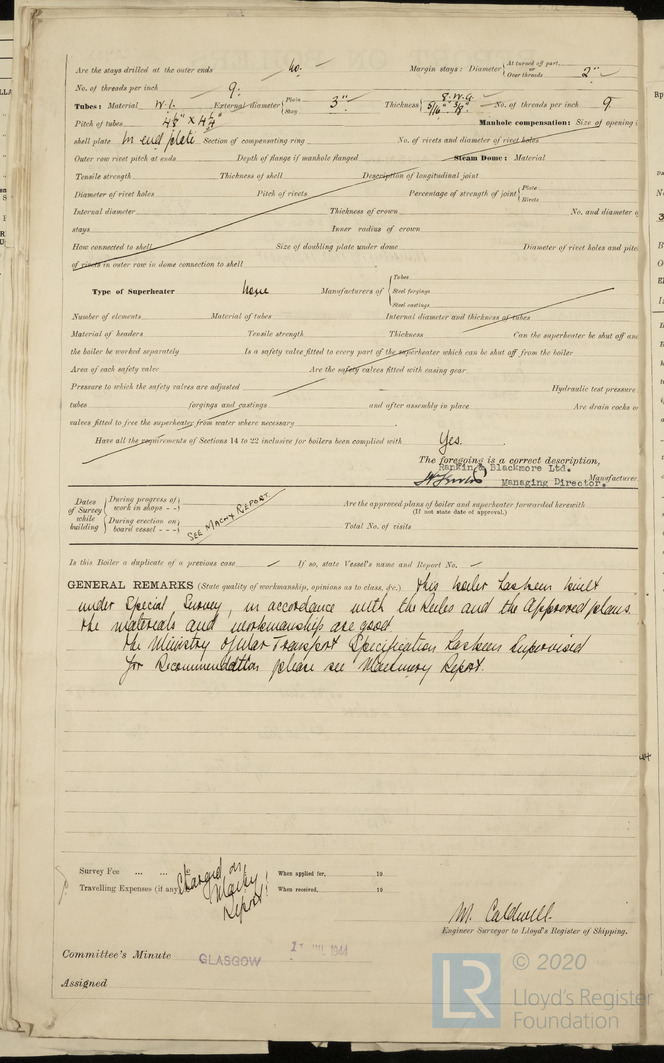 Are the stays drilled at the outer ends No. Margin stays: Diameter { At turned off part, or Over threads 2"
No. of threads per inch 9.
Tubes: Material W.I. External diameter { Plain Stay 3" Thickness { 8.W.G. 5/16" 3/8" No. of threads per inch 9
Pitch of tubes Manhole compensation: Size of opening i
shell plate In end plate Section of compensating ring No. of rivets and diameter of rivet holes
Outer row rivet pitch at ends Depth of flange if manhole flanged Steam Dome: Material
Tensile strength Thickness of shell Description of longitudinal joint
Diameter of rivet holes Pitch of rivets Percentage of strength of joint { Plate Rivets
Internal diameter Thickness of crown No. and diameter o
stays Inner radius of crown
How connected to shell Size of doubling plate under dome Diameter of rivet holes and pitc
of rivets in outer row in dome connection to shell
Type of Superheater None Manufacturers of { Tubes Steel forgings Steel castings
Number of elements Material of tubes Internal diameter and thickness of tubes
Material of headers Tensile strength Thickness Can the superheater be shut off an
the boiler be worked separately Is a safety valve fitted to every part of the superheater which can be shut off from the boiler
Area of each safety valve Are the safety valves fitted with easing gear
Pressure to which the safety valves are adjusted Hydraulic test pressure
tubes forgings and castings and after assembly in place Are drain cocks o
valves fitted to free the superheater from water where necessary
Have all the requirements of Sections 14 to 22 inclusive for boilers been complied with Yes.
The foregoing is a correct description,
Rankin & Blackmore Ltd.
Managing Director. Manufacturer.
Dates of Survey while building { During progress of work in shops - - } { During erection on board vessel - - - } SEE MACHY REPORT Are the approved plans of boiler and superheater forwarded herewith
(If not state date of approval.)
Total No. of visits
Is this Boiler a duplicate of a previous case If so, state Vessel's name and Report No.
GENERAL REMARKS (State quality of workmanship, opinions as to class, &c.) This boiler has been built
under Special Survey, in accordance with the Rules and the approved plans
the materials and workmanship are good.
The Ministry of War Transport Specification has been supervised
for Recommendation please see Machinery Report.
Survey Fee ... ... When applied for, 19
Travelling Expenses (if any) Charged on Machy Report! When received, 19
M. Caldwell.
Engineer Surveyor to Lloyd's Register of Shipping.
Committee's Minute GLASGOW 1944
Assigned
LR © 2020
Lloyd's Register
Foundation